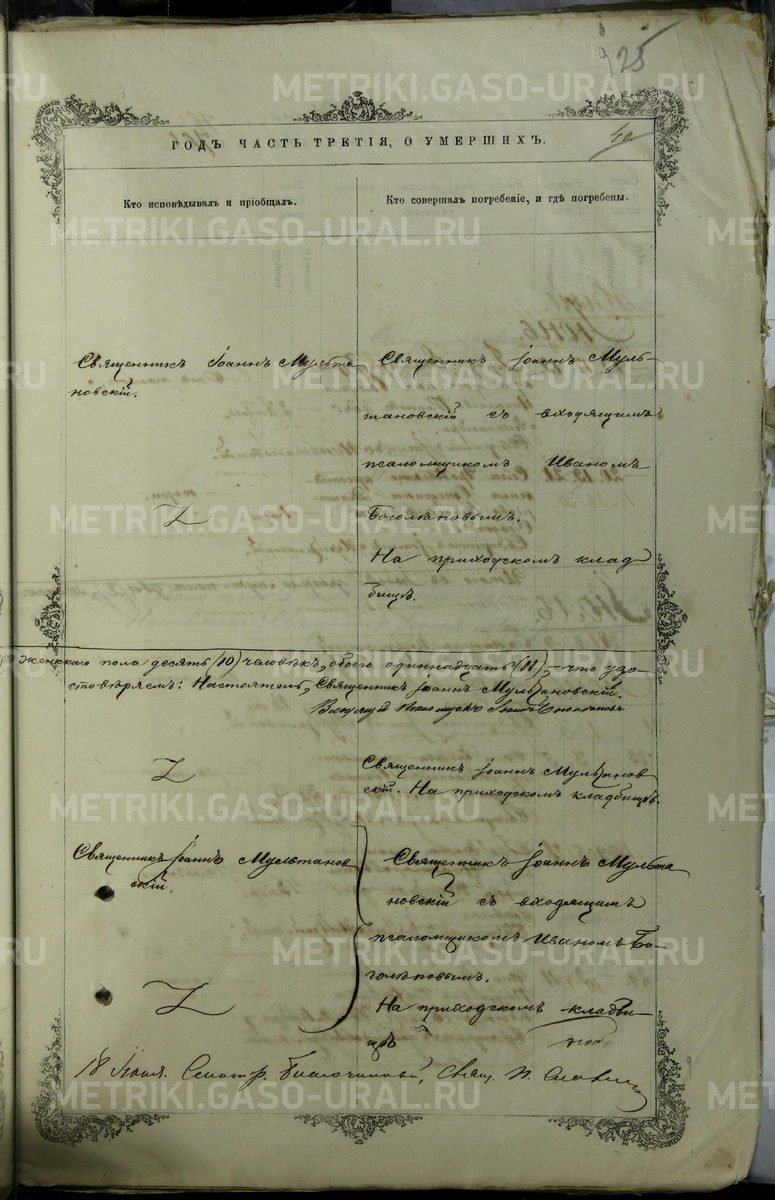 925
40
ГОДЪ ЧАСТЬ ТРЕТІЯ, О УМЕРШИХЪ.
Кто исповѣдывалъ и пріобщалъ.
Кто совершалъ погребеніе, и гдѣ погребены.
METRIKI.GASO-URAL.RU
Священникъ Іоаннъ Мульта
новскій.
Священникъ Іоаннъ Муль-
тановскій съ входящимъ
псаломщикомъ Иваномъ
Боголѣповымъ.
На приходскомъ клад
бищѣ.
женскаго пола десять (10) человѣкъ, обоего одиннадцать (11), – что удо-
стовѣряемъ: Настоятель, Священникъ Іоаннъ Мультановскій.
Псаломщикъ Іоаннъ Боголѣповъ.
Священникъ Іоаннъ Мультанов
скій. На приходскомъ кладбищѣ.
Священникъ Іоаннъ Мультанов
скій.
Священникъ Іоаннъ Мульта
новскій съ входящимъ
псаломщикомъ Иваномъ Бо-
голѣповымъ.
На приходскомъ кладби-
щѣ
18 Смотр. Благочинный, Свящ.